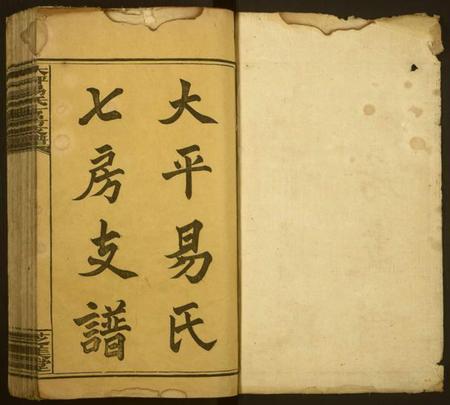 大平易氏
七房支譜